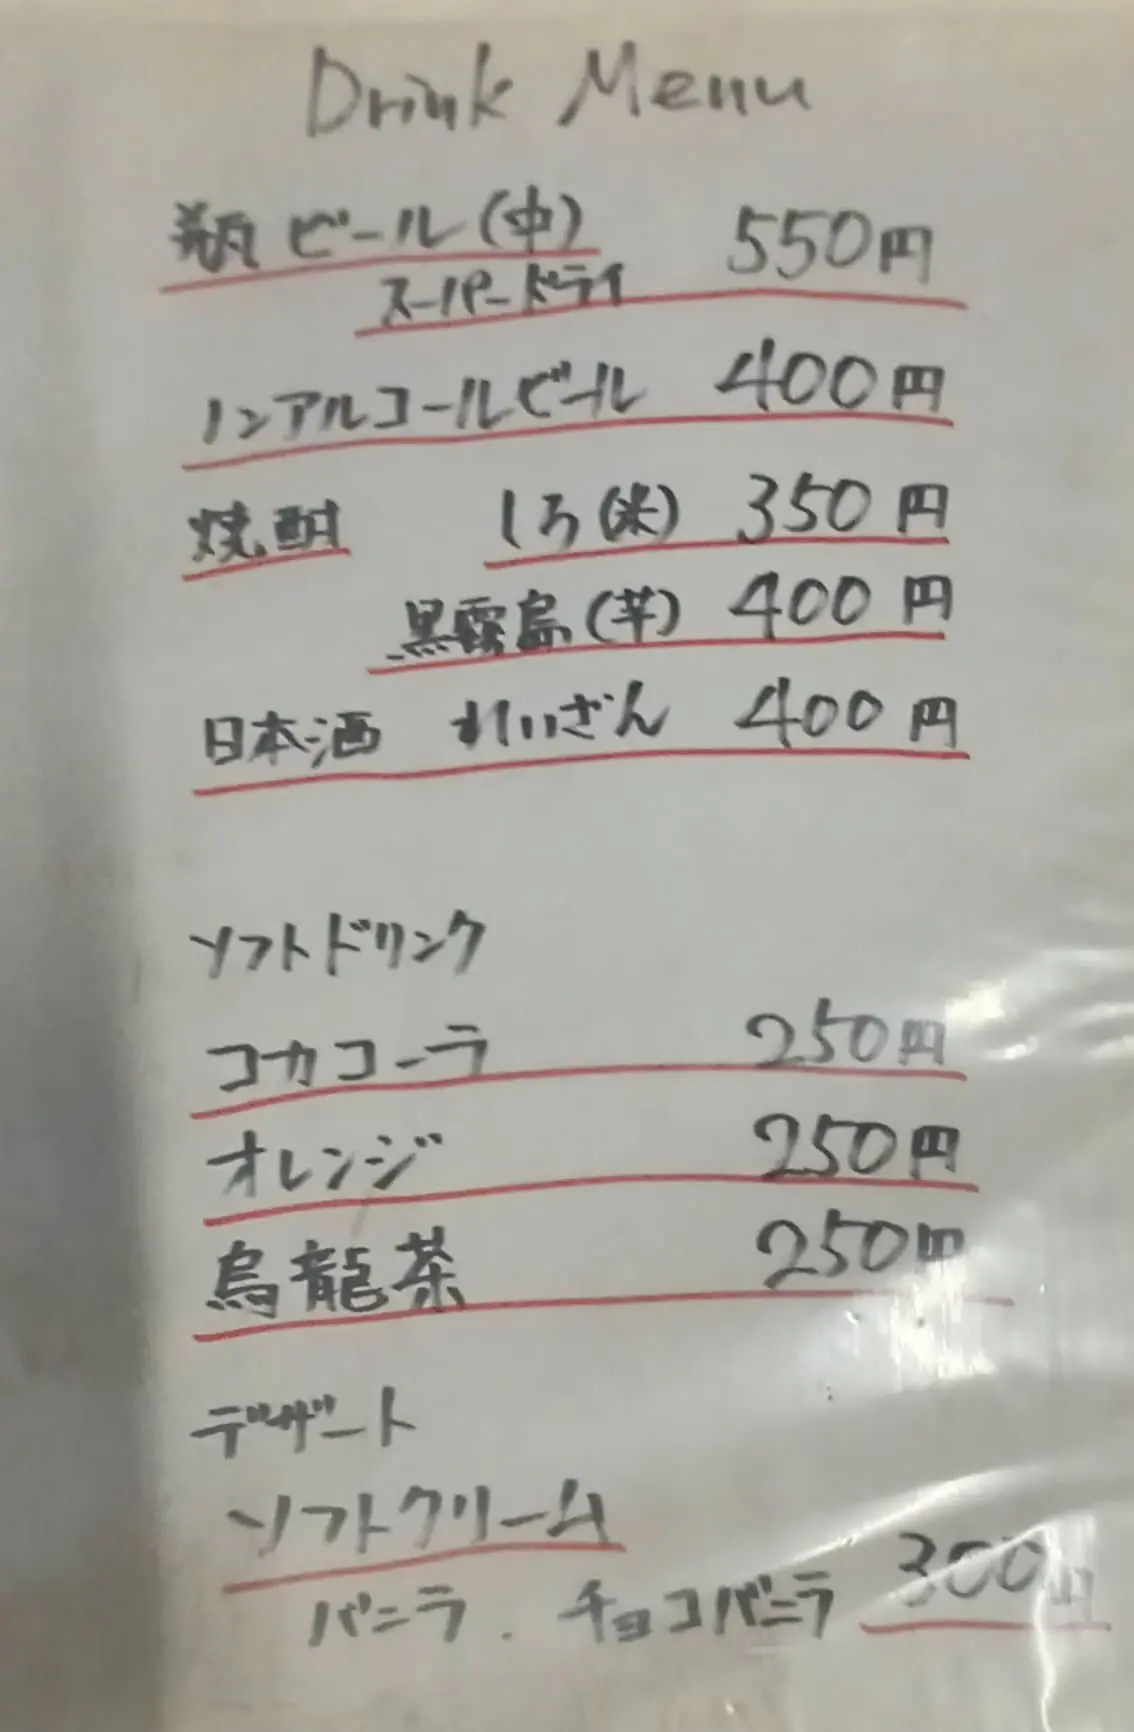 Drink Menu
瓶ビール(中) 550円
スーパードライ
ノンアルコールビール 400円
焼酎 しろ(米) 350円
黒霧島(芋) 400円
日本酒 れいざん 400円
ソフトドリンク
コカコーラ 250円
オレンジ 250円
烏龍茶 250円
デザート
ソフトクリーム
バニラ．チョコバニラ 300円